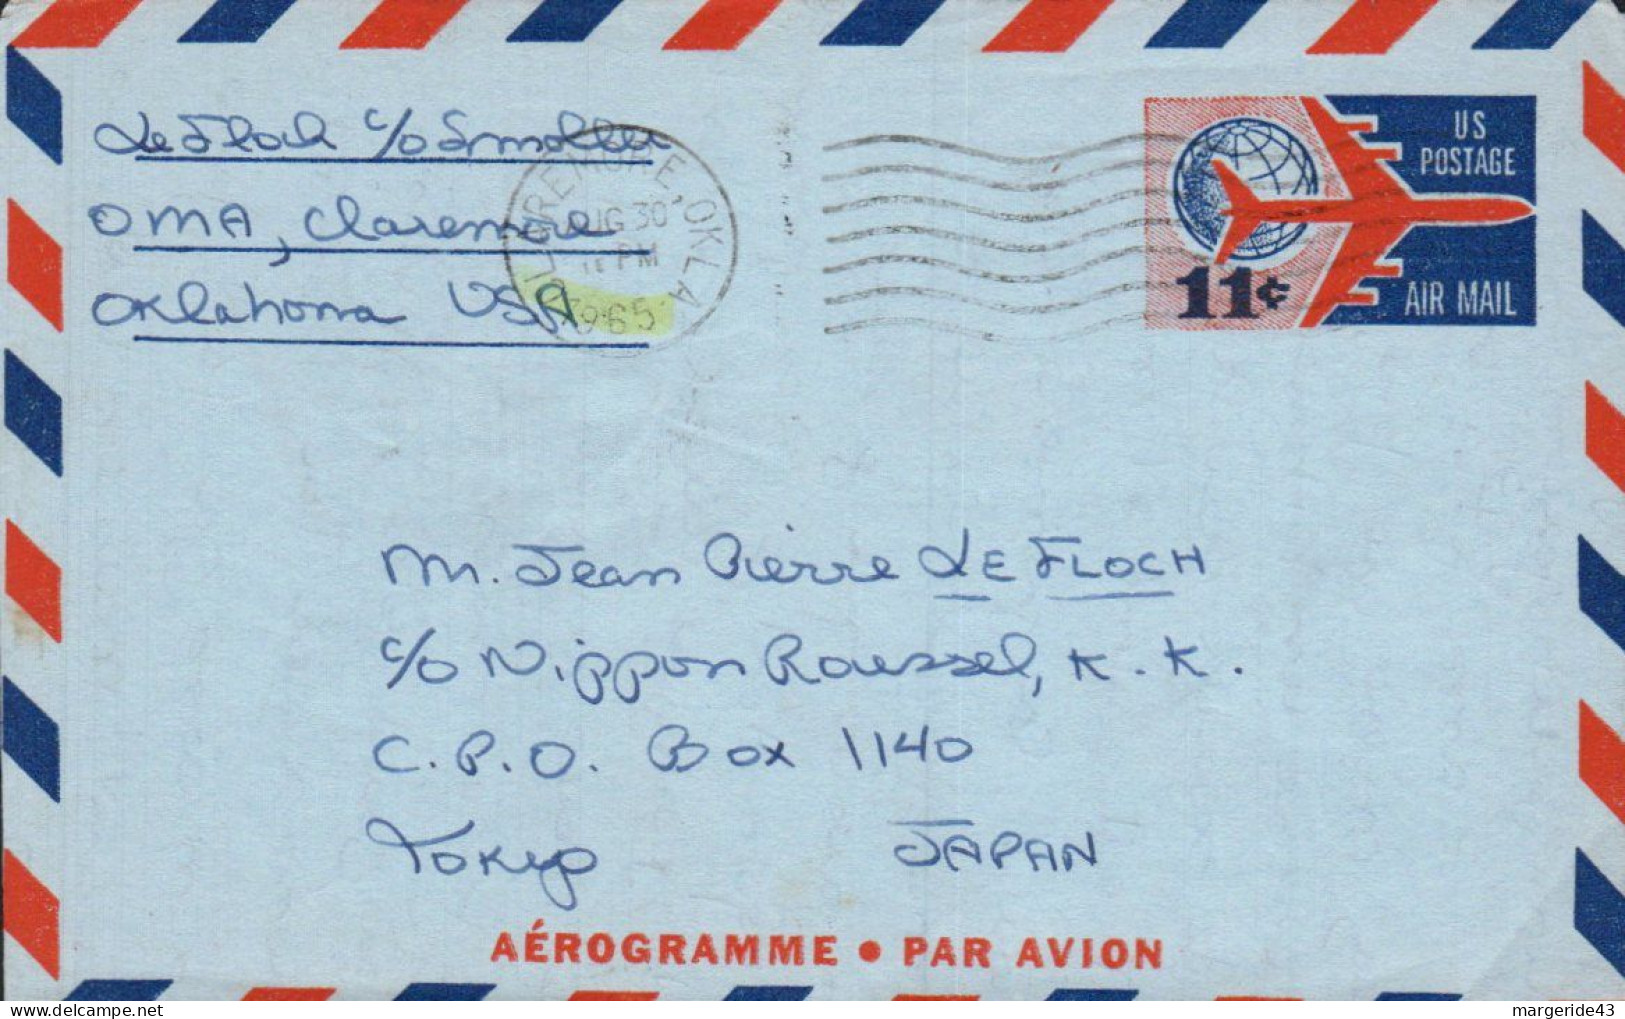 Le Floch c/o Smoller
OMA, Claremore
Oklahoma USA
CLAREMORE, OKLA
AUG 30
PM
1965
US
POSTAGE
11¢
AIR MAIL
M. Jean Pierre LE FLOCH
c/o Nippon Roussel, K. K.
C.P.O. Box 1140
Tokyo JAPAN
AÉROGRAMME • PAR AVION
margeride43